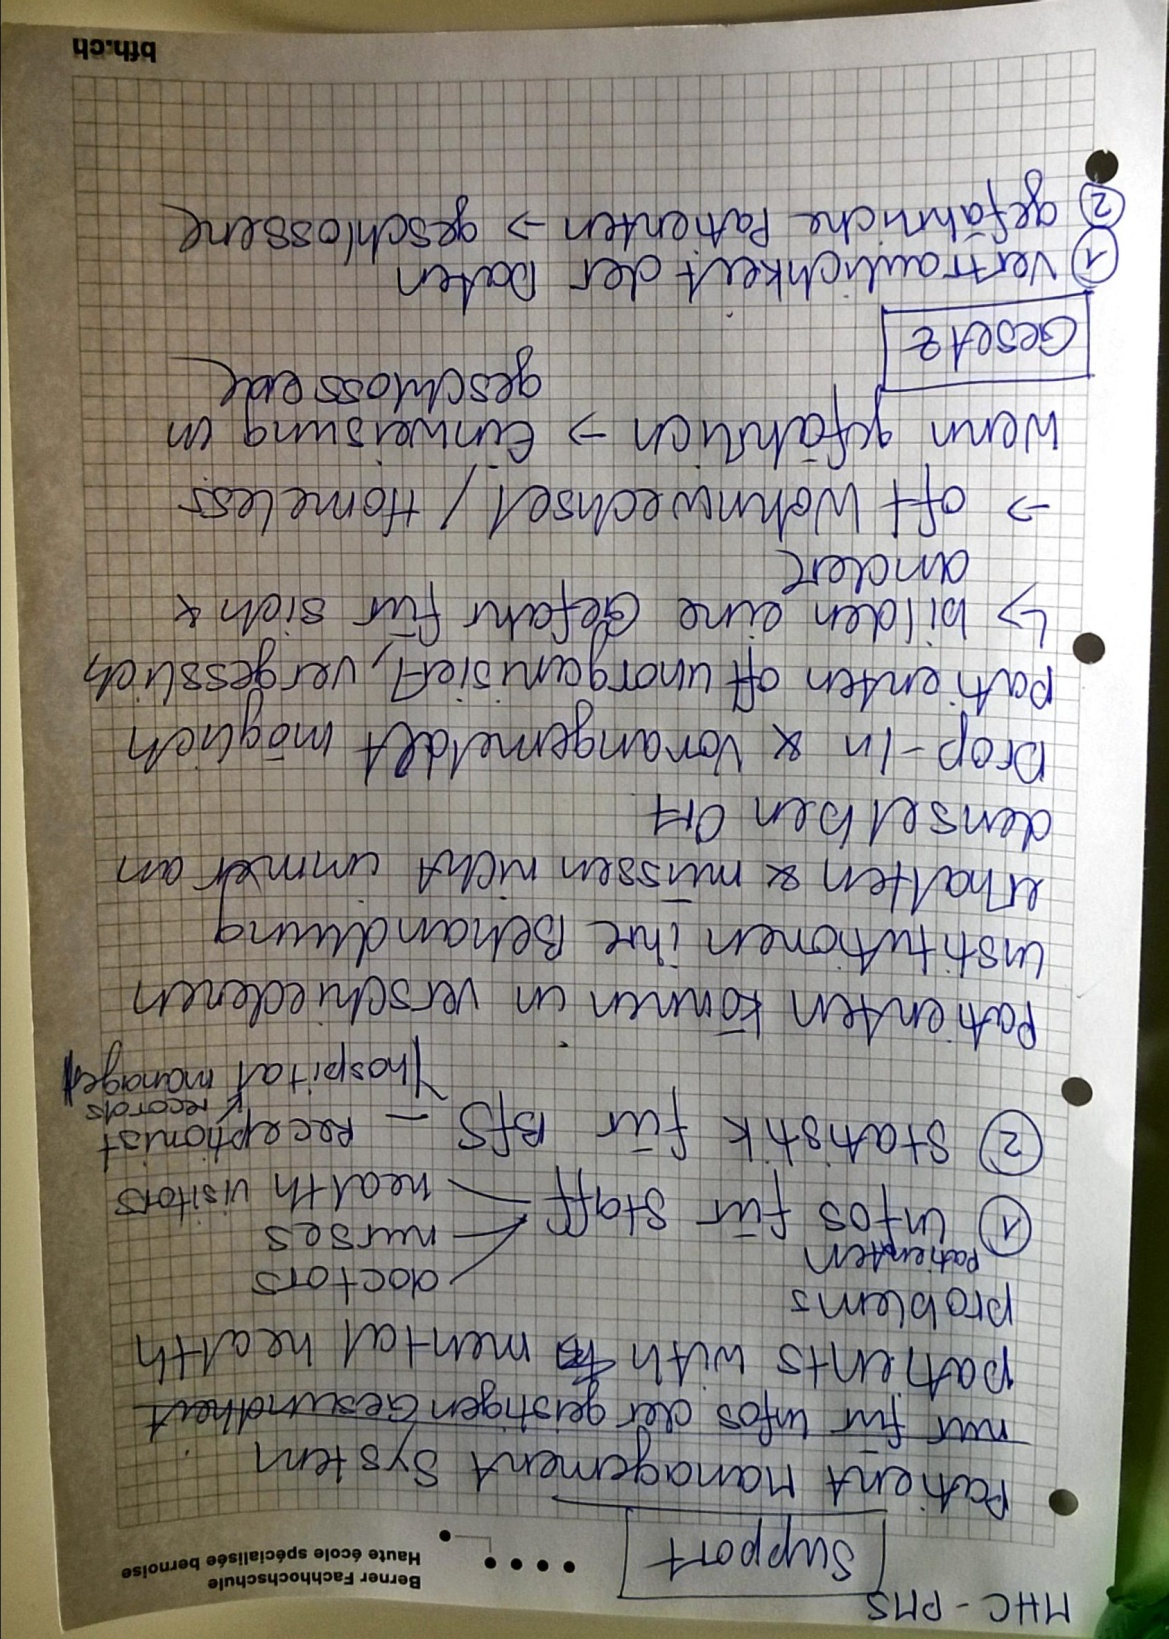 MHC-PMS
Support
Berner Fachhochschule
Haute école spécialisée bernoise
Patient Management System
nur für Infos der geistigen Gesundheit
patients with mental health
problems
Patienten
doctors
nurses
① Infos für Staff health visitors
② Statistik für BfS - receptionist
records
hospital manager
Patienten können in verschiedenen
Institutionen ihre Behandlung
erhalten & müssen nicht immer am
denselben Ort
Drop-In & Vorangemeldet möglich
Patienten oft unorganisiert, vergesslich
↳ bilden eine Gefahr für sich &
andere
→ oft Wohnwechsel / Homeless
Wenn gefährlich → Einweisung in
geschlossene
Gesetz
① Vertraulichkeit der Daten
② gefährliche Patienten → geschlossene
bfh.ch